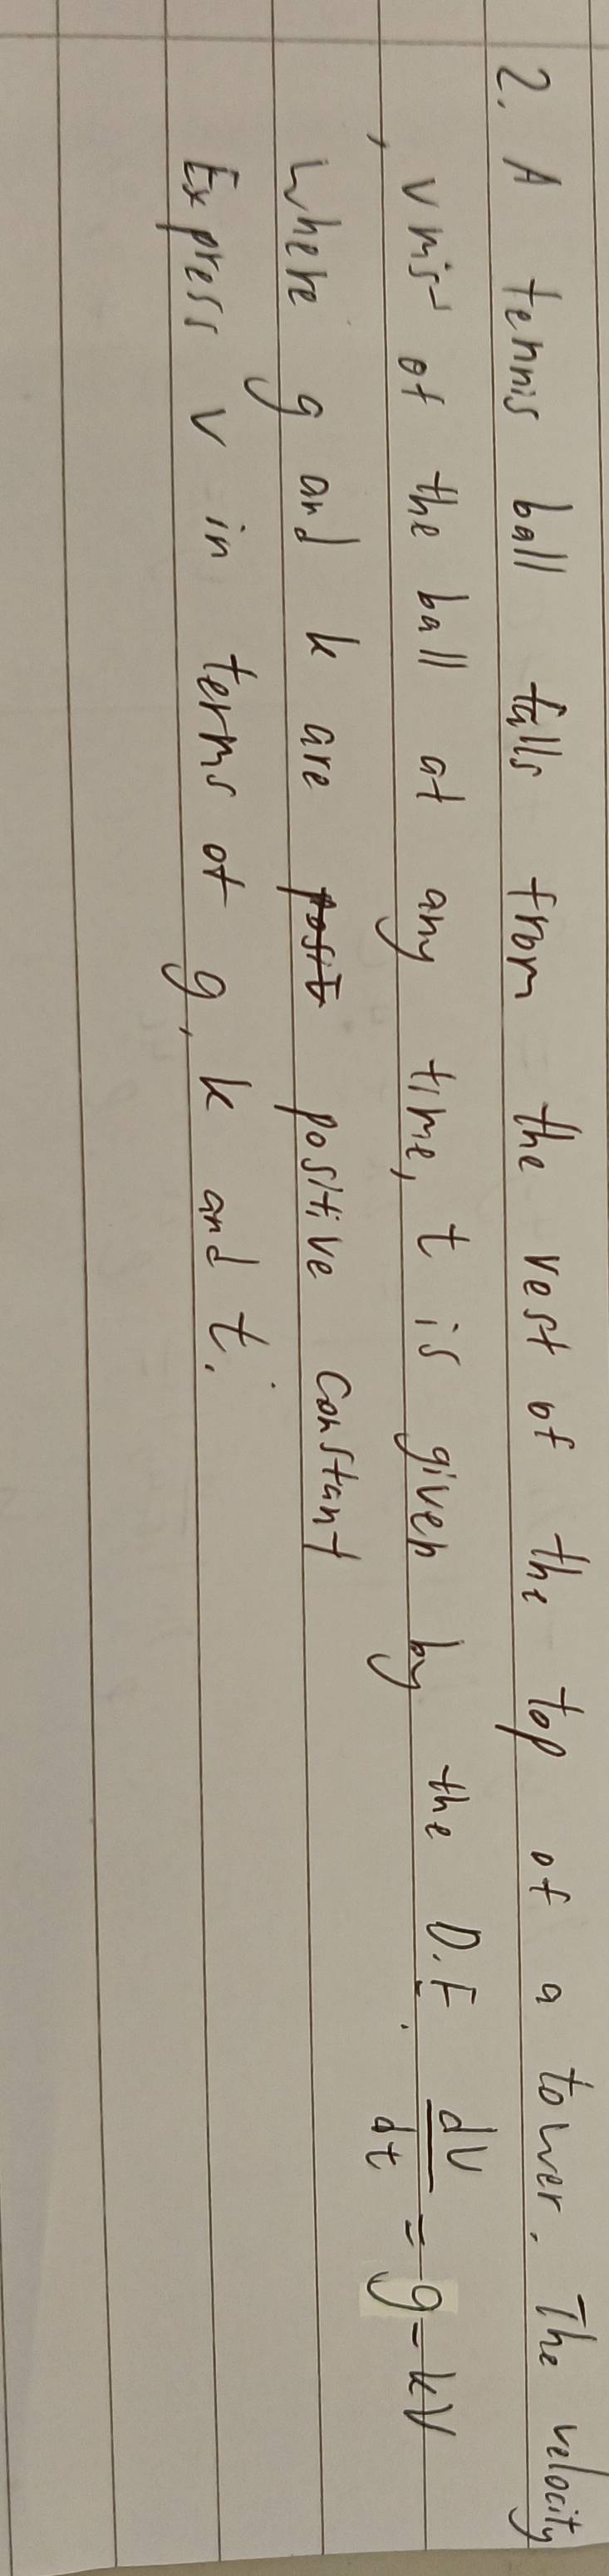 2. A tennis ball falls from the rest of the top of a tower. The velocity
, v ms⁻¹ of the ball at any time, t is given by the D.E. dv/dt = g - kv
where g and k are positive constant
Express v in terms of g, k and t.